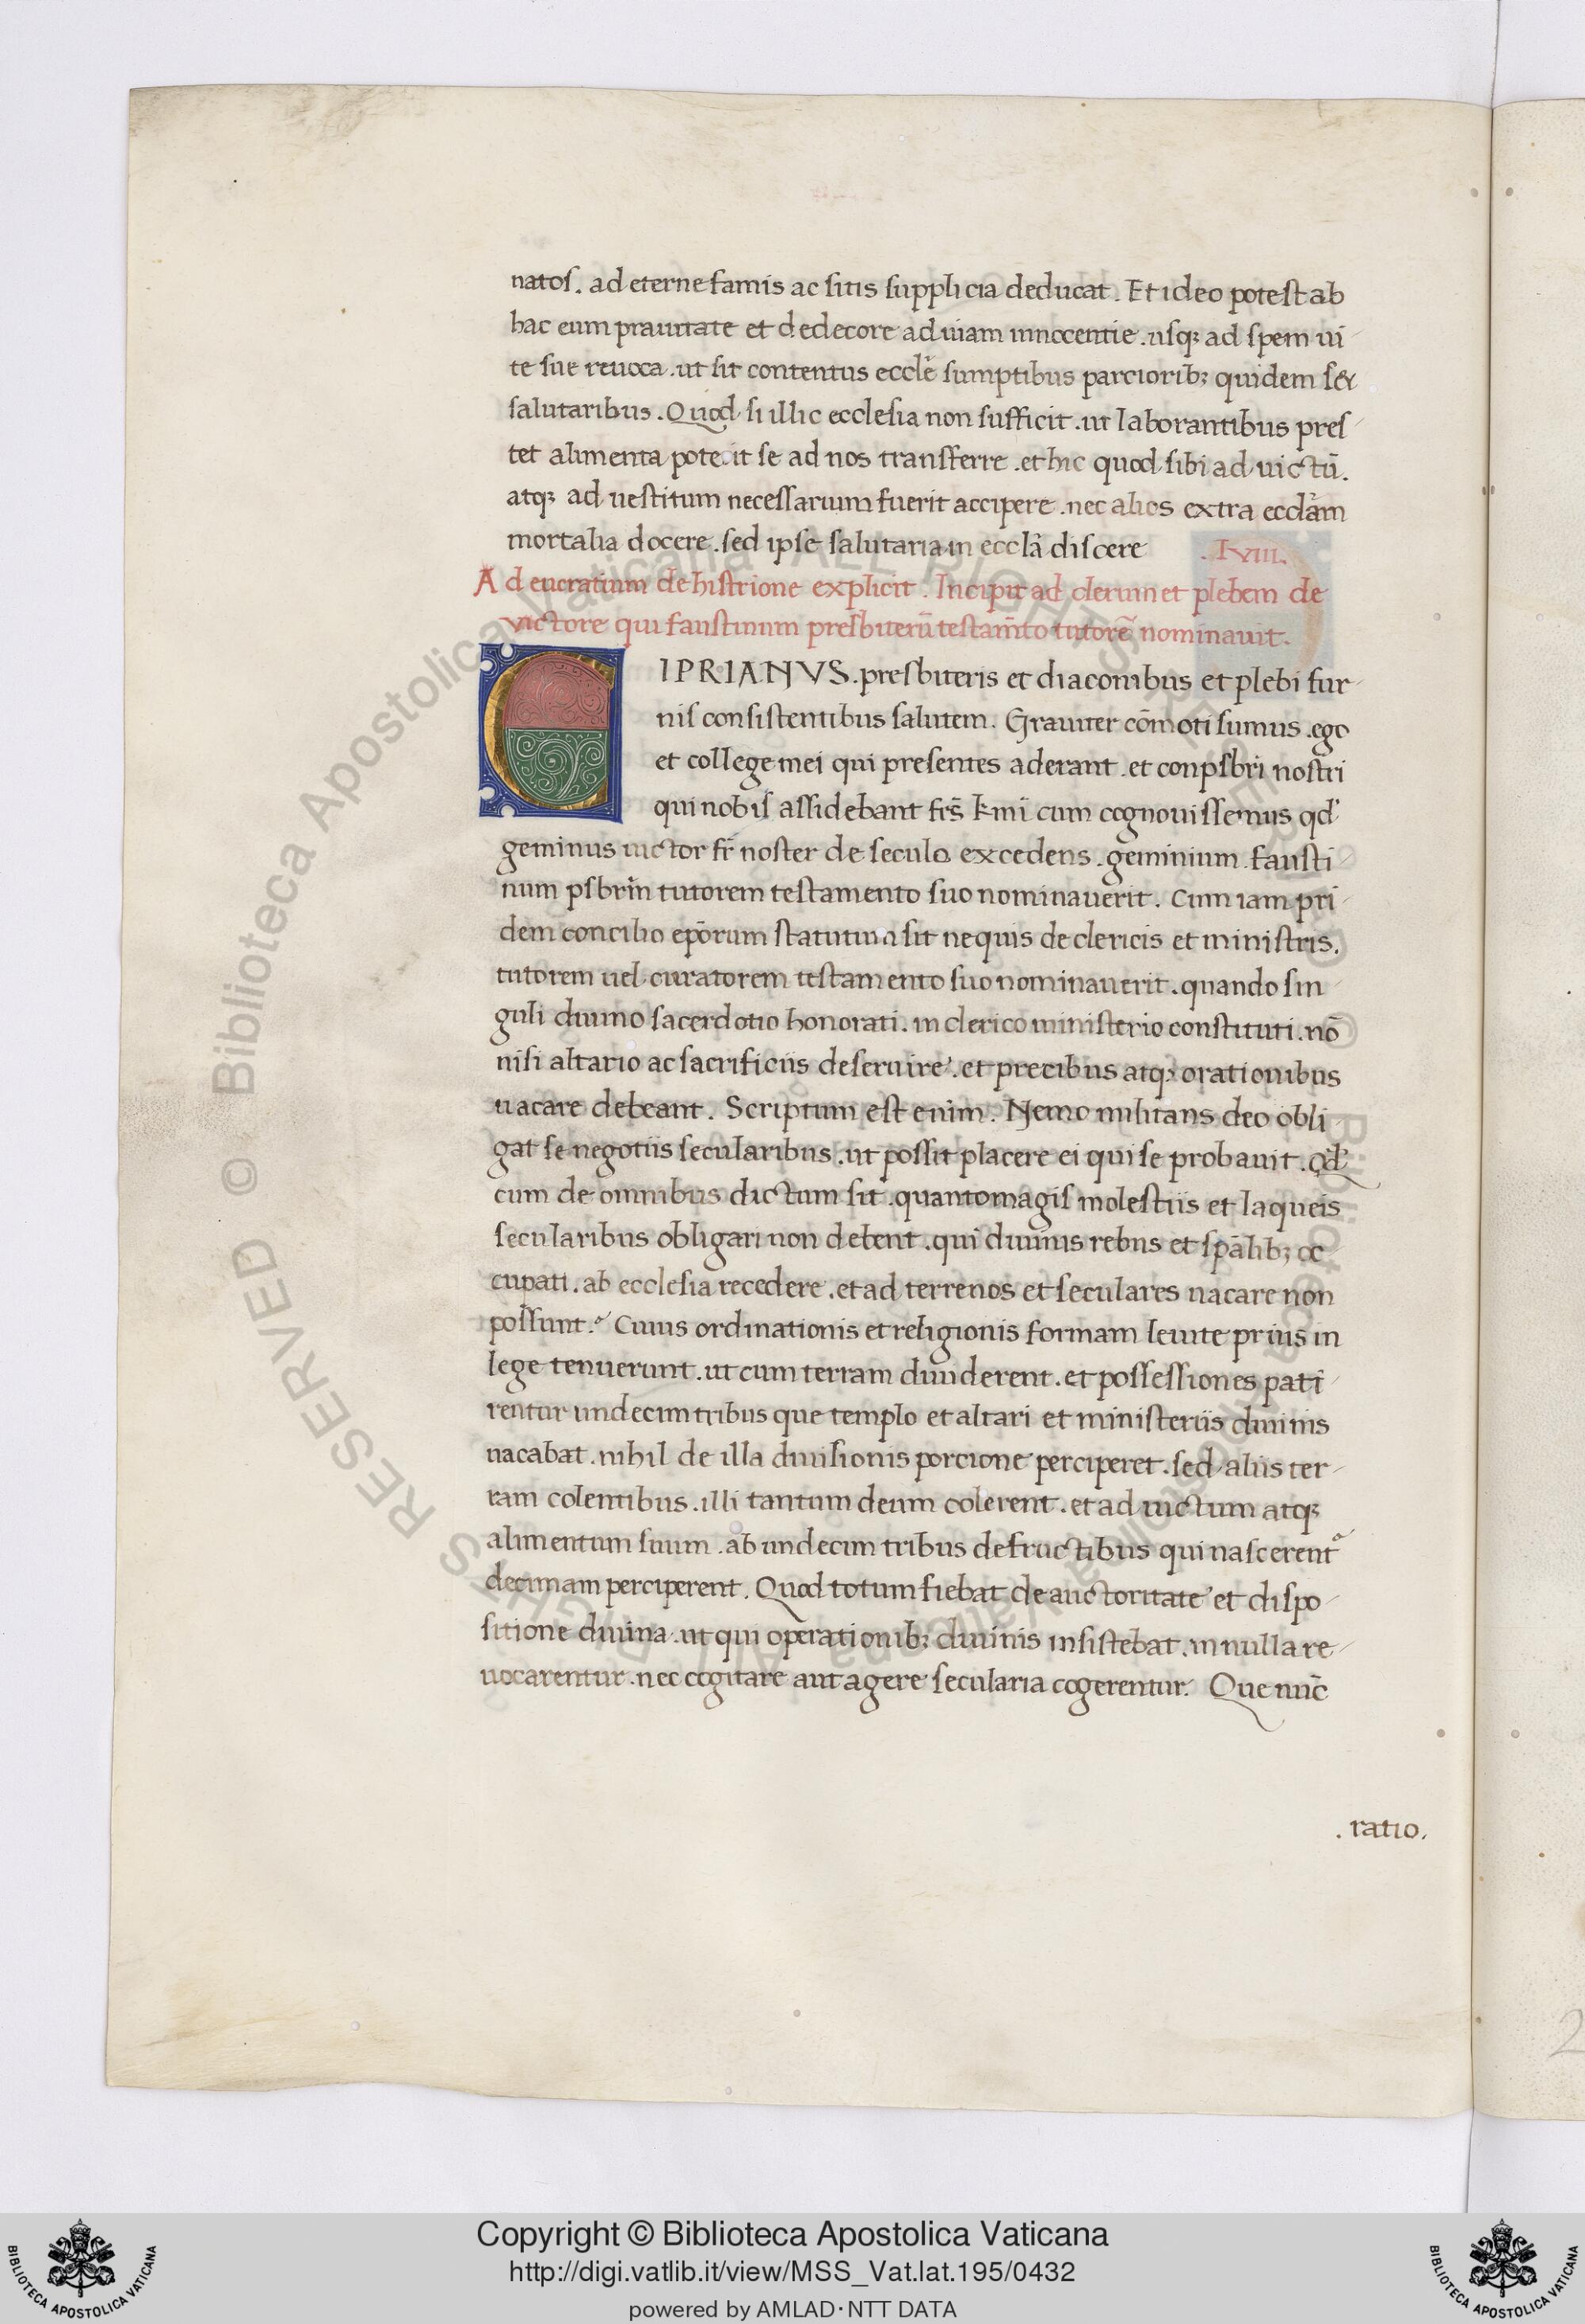 natos. ad eterne famis ac sitis supplicia deducat. Et ideo potest ab
hac eum prauitate et dedecore ad uiam innocentie. usq; ad spem ui-
te sue reuoca. ut sit contentus eccle sumptibus parciorib; quidem sed
salutaribus. Quod si illic ecclesia non sufficit. ut laborantibus pres-
tet alimenta poterit se ad nos transferre. et hic quod sibi ad uictū.
atq; ad uestitum necessarium fuerit accipere. nec alios extra ecclām
mortalia docere. sed ipse salutaria in ecclā discere .lviii.
Ad eucratium de histrione explicit. Incipit ad clerum et plebem de
victore qui faustinum presbiterū testam̄to tutorē nominauit.
CIPRIANVS. presbiteris et diaconibus et plebi fur-
nis consistentibus salutem. Grauiter cōmoti sumus. ego
et college mei qui presentes aderant. et conpsbri nostri
qui nobis assidebant frs̄ kmī cum cognouissemus qd'
geminus uictor fr̄ noster de seculo excedens. geminium fausti-
num psbrm̄ tutorem testamento suo nominauerit. Cum iam pri-
dem concilio ep̄orum statutum sit nequis de clericis et ministris.
tutorem uel curatorem testamento suo nominauerit. quando sin-
guli diuino sacerdotio honorati. in clerico ministerio constituti. nō
nisi altario ac sacrificiis deseruire. et precibus atq; orationibus
uacare debeant. Scriptum est enim. Nemo militans deo obli-
gat se negotiis secularibus. ut possit placere ei qui se probauit. Qd'
cum de omnibus dictum sit. quantomagis molestiis et laqueis
secularibus obligari non debent. qui diuinis rebus et sp̄alib; oc-
cupati. ab ecclesia recedere. et ad terrenos et seculares uacare non
possunt. Cuius ordinationis et religionis formam leuite prius in
lege tenuerunt. ut cum terram diuiderent. et possessiones pati-
rentur undecim tribus que templo et altari et ministeriis diuinis
uacabat. nihil de illa diuisionis porcione perciperet. sed aliis ter-
ram colentibus. illi tantum deum colerent. et ad uictum atq;
alimentum suum. ab undecim tribus de fructibus qui nascerent᷒
decimam perciperent. Quod totum fiebat de auctoritate et dispo-
sitione diuina. ut qui operationib; diuinis insistebat. in nulla re-
uocarentur. nec cogitare aut agere secularia cogerentur. Que nūc
. ratio.
© Biblioteca Apostolica Vaticana ALL RIGHTS RESERVED
© Biblioteca Apostolica Vaticana ALL RIGHTS RESERVED
Copyright © Biblioteca Apostolica Vaticana
http://digi.vatlib.it/view/MSS_Vat.lat.195/0432
powered by AMLAD·NTT DATA
BIBLIOTECA APOSTOLICA VATICANA
BIBLIOTECA APOSTOLICA VATICANA